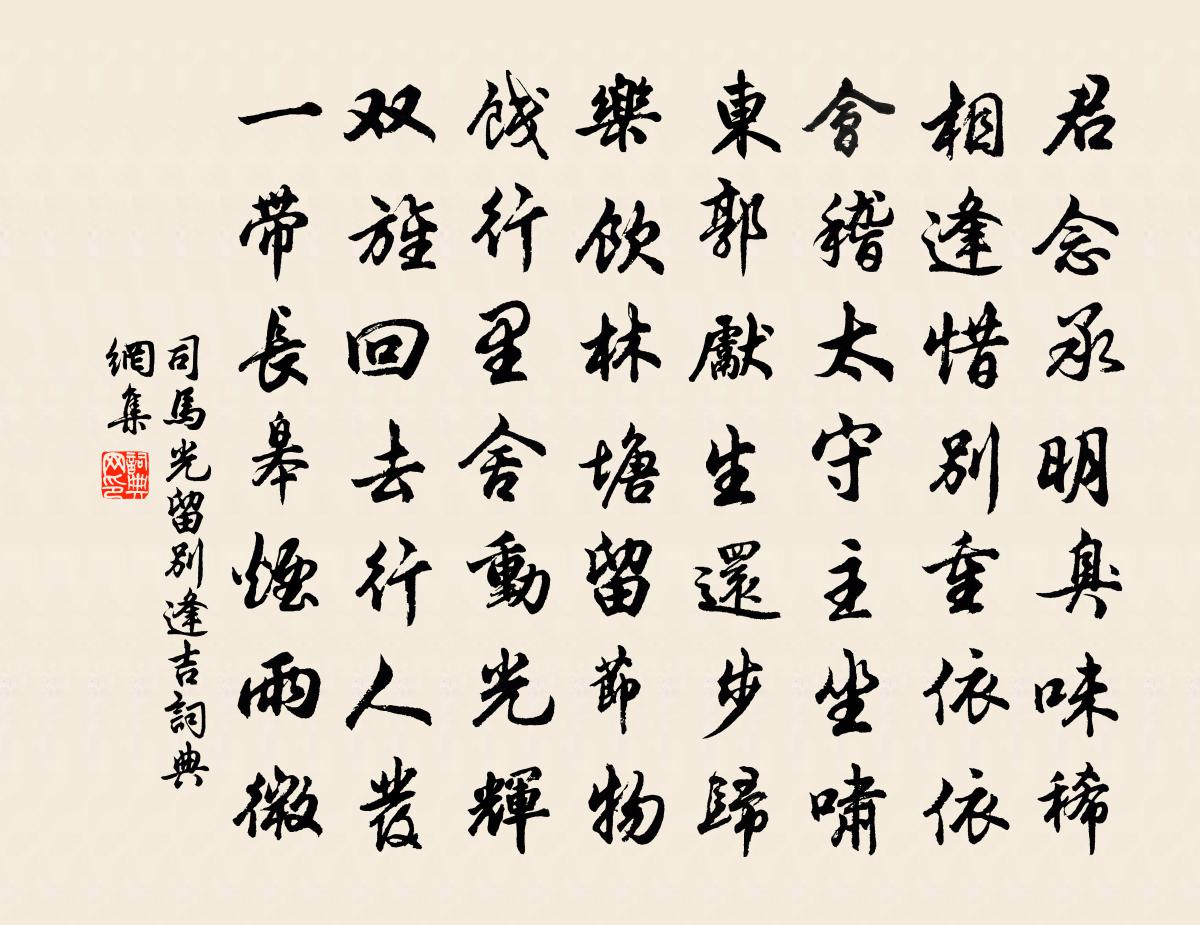 君念承明臭味稀
相逢惜別重依依
會稽太守主坐嘯
東郭獻生還步歸
樂飲林塘留節物
餞行里舍動光輝
双旌回去行人發
一帶長皋煙雨微
司馬光留別逢吉詞典
網集
詞典网印